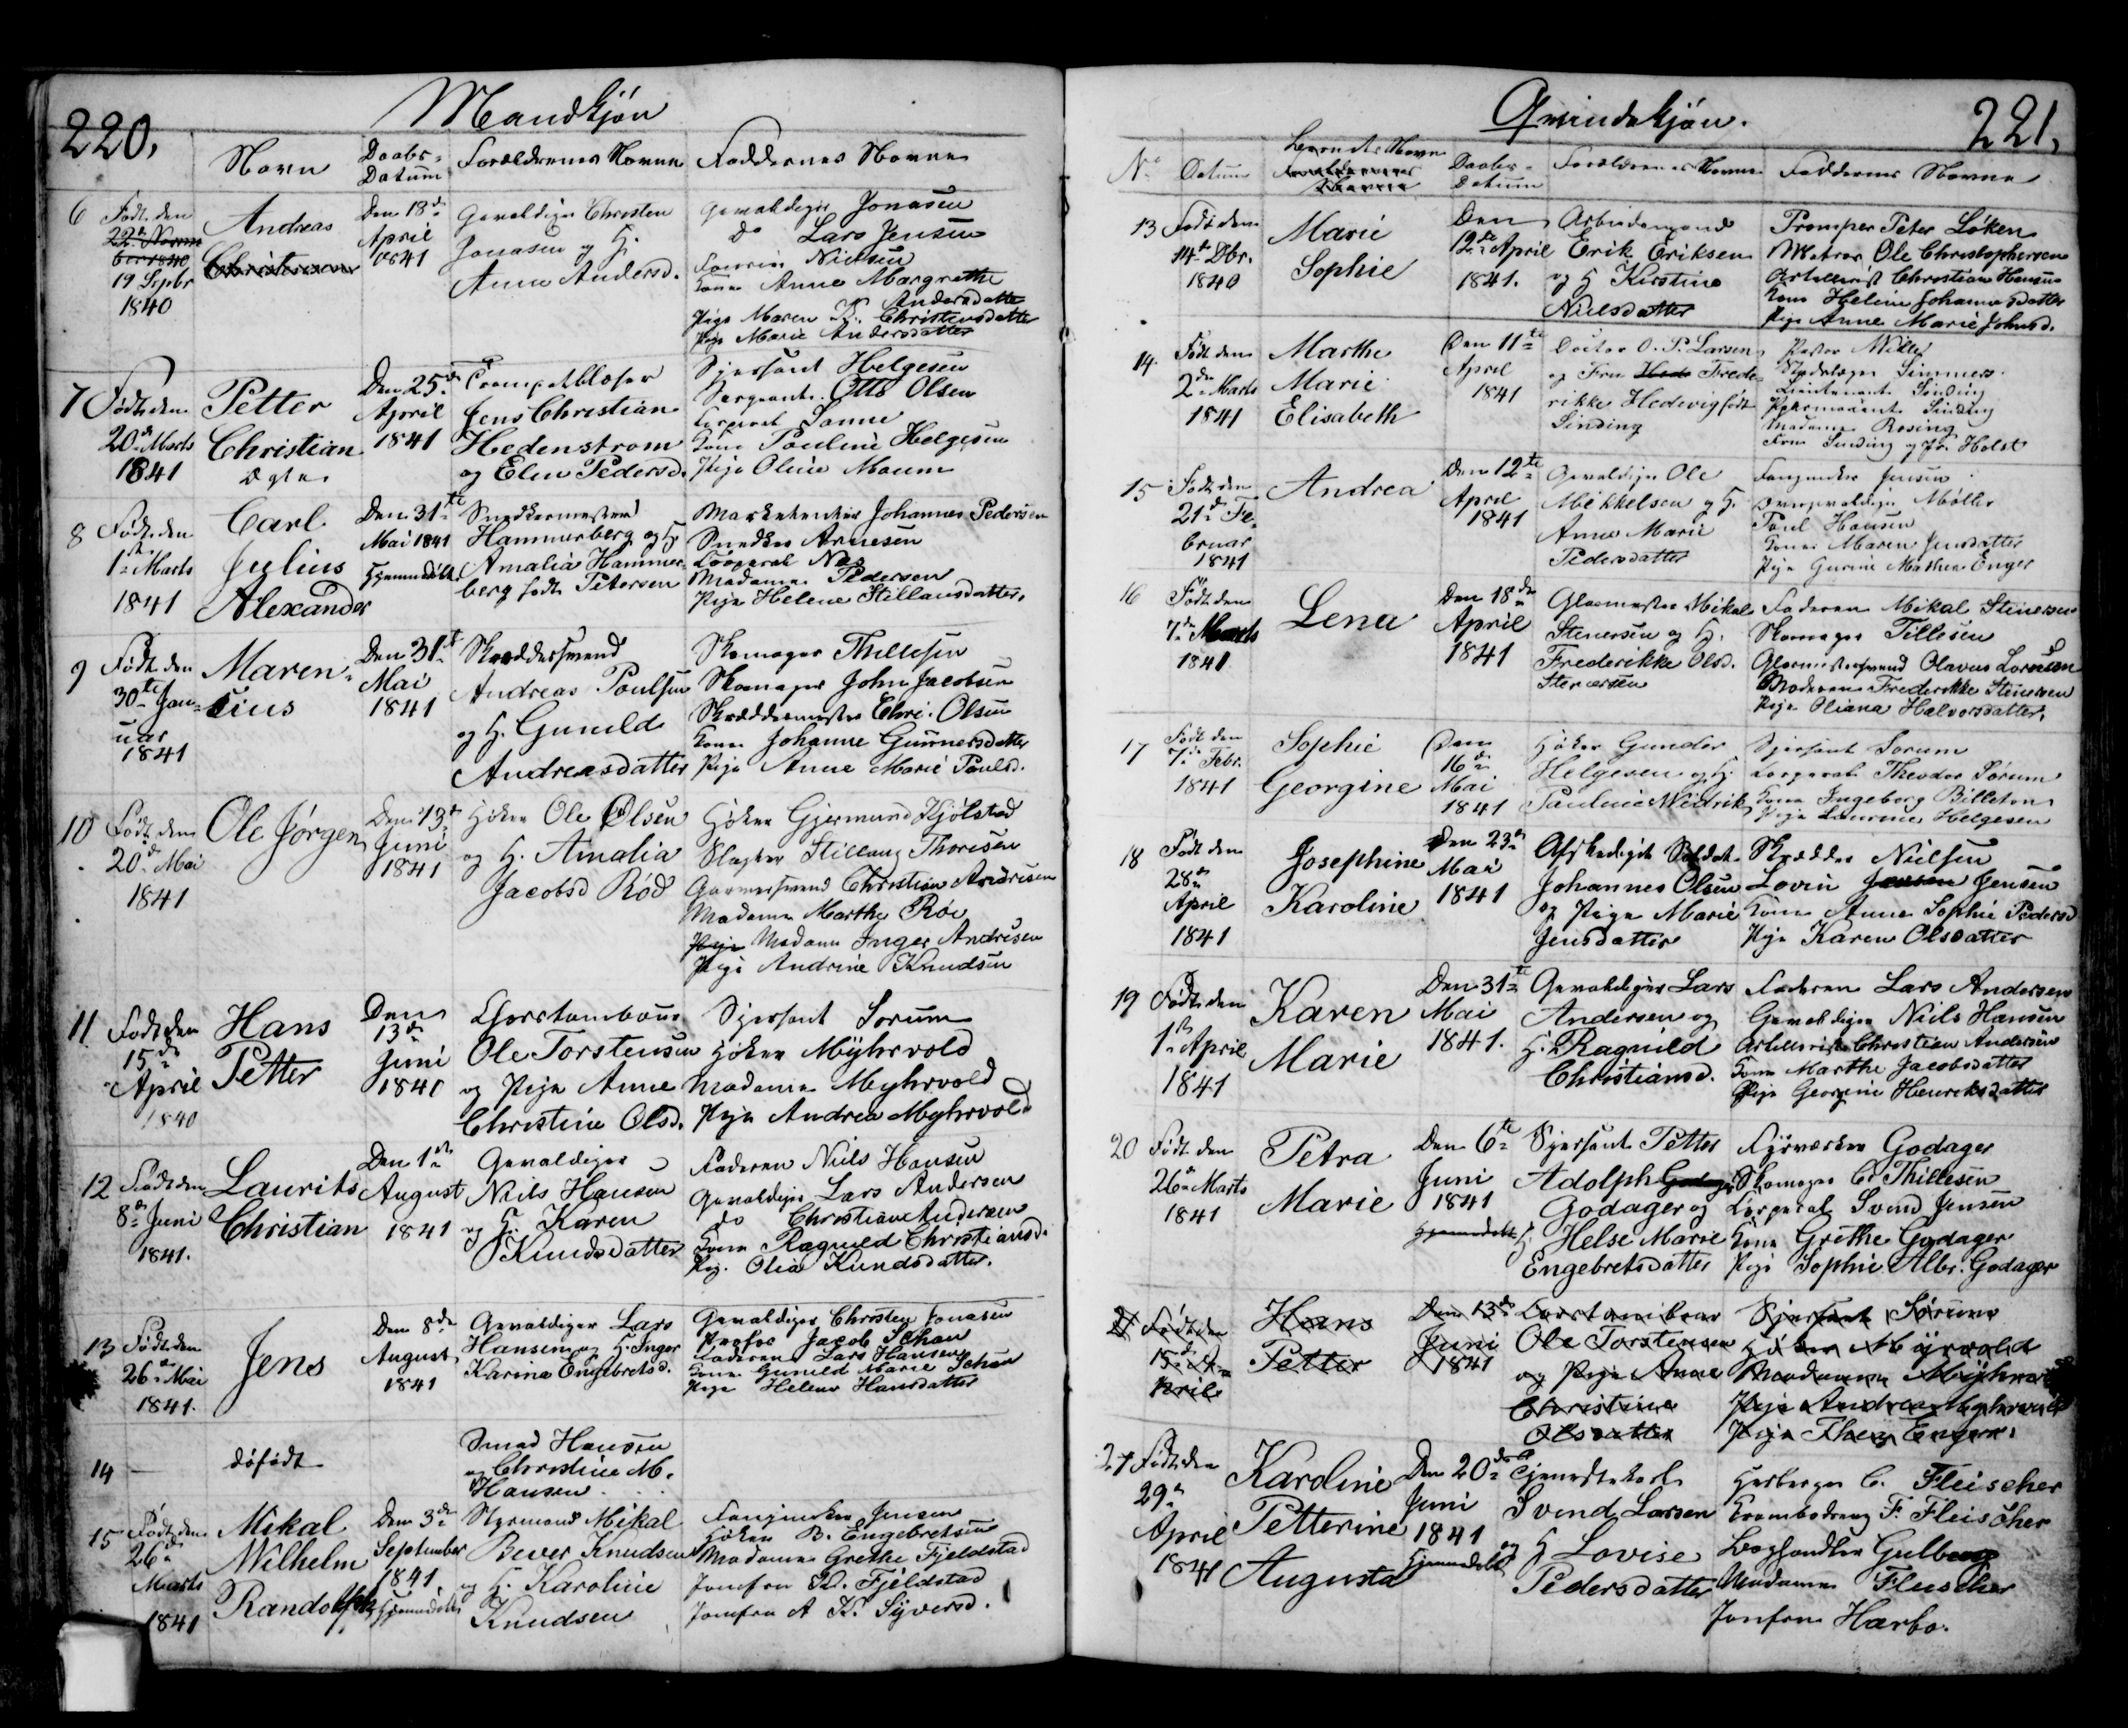 220.
Mandkjøn
Navn
Daabs-
Datum
Forældrenes Navne
Faddernes Navne
6
Født den
22de Novem
ber 1840
19 Septbr
1840
Andreas
Christensen
Den 18de
April
1841
Gevaldiger Christen
Jonasen og H.
Anne Andersd.
Gevaldiger Jonasen
do Lars Jensen
Nielsen
Kone Anne Margrethe
Andersdatter
Pige Maren K. Christensdatter
Pige Marie Andersdatter
7
Født den
20de Marts
1841
Petter
Christian
Ægte
Den 25de
April
1841
Trompetblaser
Jens Christian
Hedenstrom
og Elen Pedersd.
Sjersant Helgesen
Sergeant Otto Olsen
Corporal Sanne
Kone Pauline Helgesen
Pige Oline Maum
8
Født den
1ste Marts
1841
Carl
Julius
Alexander
Den 31te
Mai 1841
Hjemmedøbt
Snedkermester
Hammerberg og H.
Amalia Hammer-
berg født Petersen
Marketenter Johannes Pedersen
Snedker Arnesen
Corporal Næs
Madame Pedersen
Pige Helene Stillausdatter.
9
Født den
30te Jan-
uar
1841
Maren-
sius
Den 31te
Mai
1841
Skræddersvend
Andreas Poulsen
og H. Gunild
Andreasdatter
Skomager Thillesen
Skomager John Jacobsen
Skræddermester Chri. Olsen
Kone Johanne Gunnersdatter
Pige Anne Marie Paulsd.
10
Født den
20de Mai
1841
Ole Jørgen
Den 13de
Juni
1841
Høker Ole Olsen
og H. Amalia
Jacobsd Röd
Høker Gjermund Kjølstad
Slagter Stillaug Thoresen
Garversvend Christian Andresen
Madame Marthe Röe
Pige Madame Inger Andresen
Pige Andrine Knudsen
11
Født den
15de
April
1840
Hans
Petter
Den
13de
Juni
1840
Chortambour
Ole Torstensen
og Pige Anne
Christine Olsd.
Sjersant Sorum
Høker Myhrvold
Madame Myhrvold
Pige Andrea Myhrvold
12
Født den
8de Juni
1841.
Laurits
Christian
Den 1ste
August
1841
Gevaldiger
Niels Hansen
og H. Karen
Knudsdatter
Faderen Niels Hansen
Gevaldiger Lars Andersen
do Christian Andersen
Kone Ragnild Christiansd.
Pig. Olea Knudsdatter.
13
Født den
26de Mai
1841.
Jens
Den 8de
August
1841
Gevaldiger Lars
Hansen og H. Inger
Karine Engebretsd.
Gevaldiger Christen Jonasen
Profos Jacob Schau
Faderen Lars Hansen
Kone Gunild Marie Schau
Pige Helene Hansdatter
14
døfødt
Smed Hansen
og Christine M.
Hansen
15
Født den
26de
Marts
1841
Mikal
Wilhelm
Randolph
Den 3de
September
1841
Hjemmedøbt
Styrmand Mikal
Bever Knudsen
og H. Karoline
Knudsen
Fanejunker Jensen
Høker B. Engebretsen
Madame Grethe Fjeldstad
Jomfru Fjeldstad
Jomfru A K. Syversd.
Qvindekjøn.
221.
No
Datum
Barnets Navn
Forældrenes
Navne
Daabs-
Datum
Forældrenes Navne
Faddernes Navne
13
Født den
14de Dbr.
1840
Marie
Sophie
Den
12te April
1841.
Arbeidsmand
Erik Eriksen
og H Kirstine
Nielsdatter
Tromper Peter Löken
Matros Ole Christophersen
Artillerist Christian Hansen
Kone Helene Johannesdatter
Pige Anne Marie Johnsd.
14.
Født den
2den Marts
1841
Marthe
Marie
Elisabeth
Den 11te
April
1841
Doctor O. P. Larsen
og Fru Hed Frede-
rikke Hedevig født
Sinding
Pastor Wille
Stadslæge Simmers
Lieutenant Sinding
Sinding
Madame Rosing
Frue Sinding og Fr. Holst
15
Født den
21de Fe-
bruar
1841
Andrea
Den 12te
April
1841
Gevaldiger Ole
Mikkelsen og H.
Anne Marie
Pedersdatter
Fanejunker Jensen
Overgevaldiger Møller
Poul Hansen
Kone Maren Jensdatter
Pige Gurine Mathea Enger
16
Født den
7de Marts
1841
Lena
Den 18de
April
1841
Glasmester Mikal
Stenersen og H.
Frederikke Olsd.
Stenersen
Faderen Mikal Stenersen
Skomager Tillesen
Glasmestersvend Olavus Lorensen
Moderen Frederikke Stenersen
Pige Oliana Halvorsdatter.
17
Født den
7de Febr.
1841
Sophie
Georgine
Den
16de
Mai
1841
Høker Gunder
Helgesen og H.
Pauline Wedrik
Sjersant Sorum
Corporal Theodor Sørum
Kone Ingeborg Billeton
Pige Laurine Helgesen
18
Født den
28de
April
1841
Josephine
Karoline
Den 23de
Mai
1841
Afskediget Soldat
Johannes Olsen
og Pige Marie
Jensdatter
Skrædder Nielsen
Lovin Jensen Jensen
Kone Anne Sophie Pedersd
Pige Karen Olsdatter
19
Født den
1ste April
1841
Karen
Marie
Den 31te
Mai
1841.
Gevaldiger Lars
Andersen og
H. Ragnild
Christiansd.
Faderen Lars Andersen
Gevaldiger Niels Hansen
Artillerist Christian Andersen
Kone Marthe Jacobsdatter
Pige Georgine Henriksdatter
20
Født den
26de Marts
1841
Petra
Marie
Den 6te
Juni
1841
hjemmedøbt
Sjersant Petter
Adolph Godag
Godager og
H. Helse Marie
Engebretsdatter
Fyrverker Godager
Skomager C. Thillesen
Corporal Svend Jensen
Kone Grethe Godager
Pige Sophie Albr. Godager
21
Født den
15de A-
pril
Hans
Petter
Den 13de
Juni
1841
Cortambour
Ole Torstensen
og Pige Anne
Christine
Olsdatter
Sjersant Sørum
Høker Myrvold
Madame Myhrvold
Pige Andrea Myhrvold
Pige Thea Enger.
21
Født den
29de
April
1841
Karoline
Petterine
Augusta
Den 20de
Juni
1841
Hjemmedøbt
Tjenestekarl
Svend Larsen
og H Lovise
Pedersdatter
Herberger C. Fleischer
Krambodreng F. Fleischer
Boghandler Gulberg
Madame Fleischer
Jomfru Harbo.